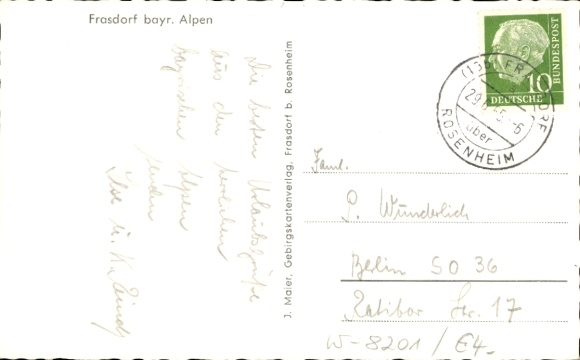 Frasdorf bayr. Alpen
Die besten Urlaubsgrüße
aus den herrlichen
bayrischen Alpen
senden
Ilse u. K.
J. Maier, Gebirgskartenverlag, Frasdorf b. Rosenheim
DEUTSCHE BUNDESPOST
10
(13b) FRASDORF
über
ROSENHEIM
Faml.
P. Wunderlich
Berlin SO 36
Ratibor Str. 17
W-8201 / E4.-